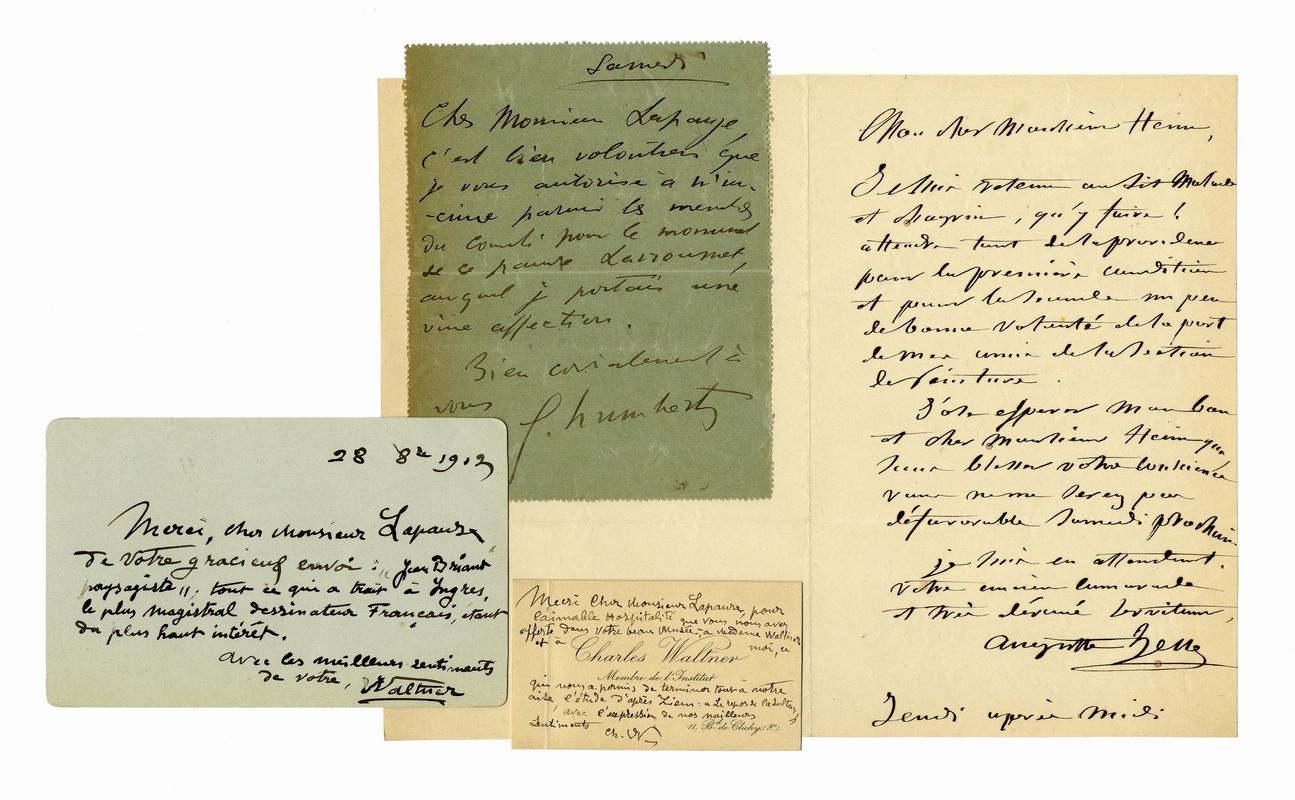 Samedi
Cher Monsieur Lapauze,
c'est bien volontiers que
je vous autorise à m'ins-
-crire parmi les membres
du Comité pour le monument
de ce pauvre Larroumet,
auquel je portais une
vive affection.
Bien cordialement à
vous
f. humbert
Mon cher Monsieur Heim,
Je suis retenu au lit Malade
et chagrin, qu'y faire !
attendre tout de la providence
pour la première condition
et pour la seconde un peu
de bonne volonté de la part
de mes amis de la Section
de Peinture.
J'ose espérer Mon bon
et cher Monsieur Heim que
sans blesser votre conscience
vous ne me serez pas
défavorable Samedi prochain.
je suis en attendant.
votre ancien camarade
et très dévoué Serviteur,
Auguste Hesse
Jeudi après Midi
28 8re 1912
Merci, cher Monsieur Lapauze
de votre gracieux envoi : "Jean Briant
paysagiste", tout ce qui a trait à Ingres,
le plus magistral dessinateur Français, étant
du plus haut intérêt.
avec les meilleurs sentiments
de votre, Waltner
Merci Cher Monsieur Lapauze, pour
l'aimable Hospitalité que vous nous avez
offerte dans votre beau Musée, à madame Waltner
et à moi, ce
Charles Waltner
Membre de l'Institut
qui nous a permis de terminer tout à notre
aise l'étude d'après Ziem :
avec l'expression de nos meilleurs
Sentiments
11, Bd. de Clichy (9e)
Ch. W